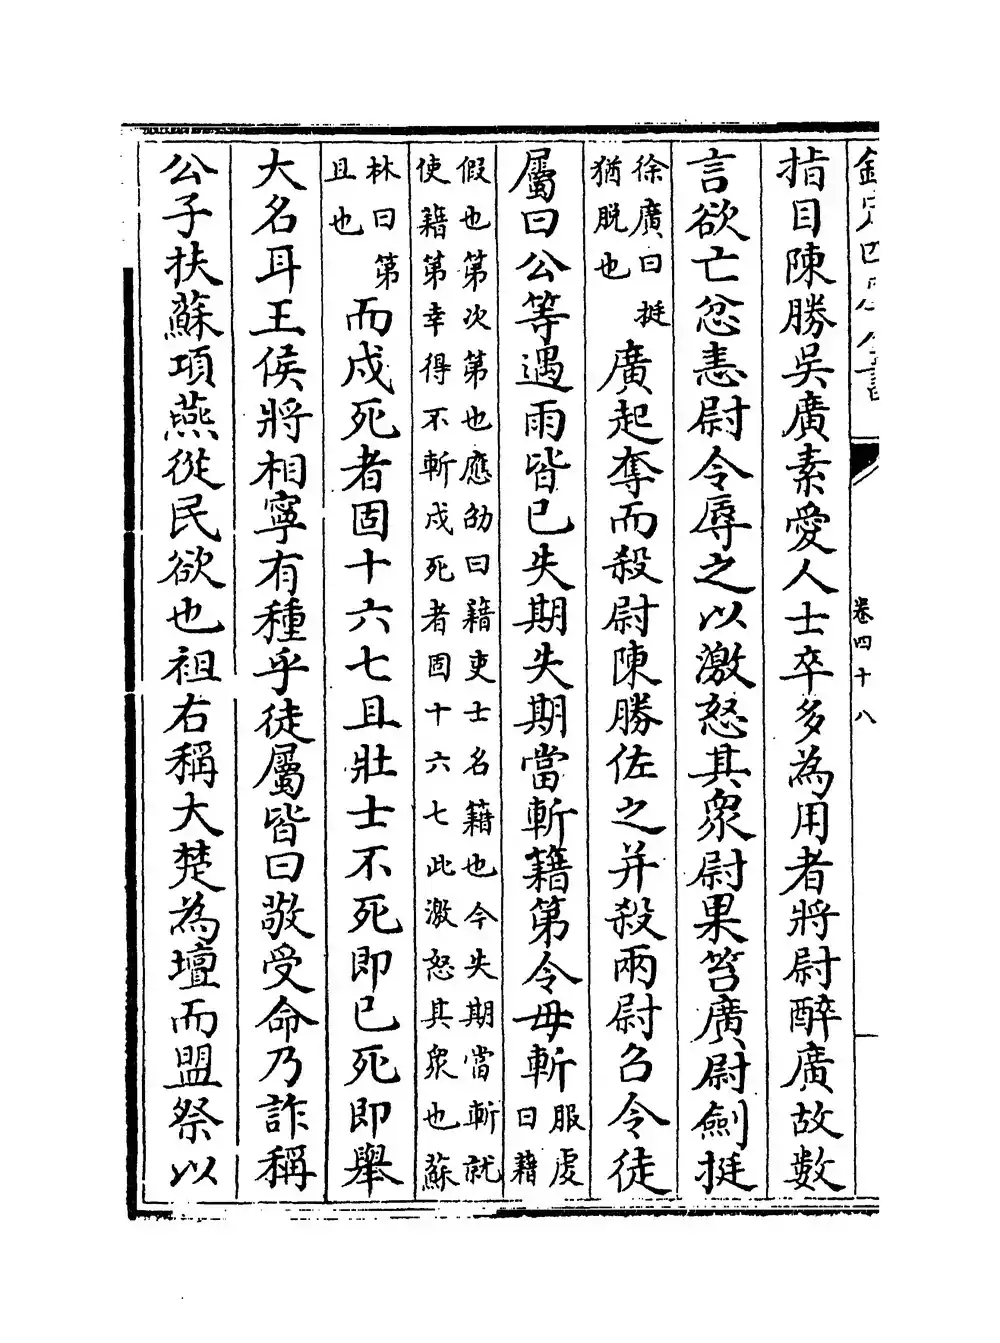 欽定四庫全書
卷四十八
指目陳勝吳廣素愛人士卒多為用者將尉醉廣故數
言欲亡忿恚尉令辱之以激怒其衆尉果笞廣尉劍挺
徐廣曰挺
猶脱也
廣起奪而殺尉陳勝佐之并殺兩尉召令徒
屬曰公等遇雨皆已失期失期當斬籍第令毋斬
服虔
曰籍
假也第次第也應劭曰籍吏士名籍也今失期當斬就
使籍第幸得不斬戍死者固十六七此激怒其衆也蘇
林曰第
且也
而戍死者固十六七且壯士不死即已死即舉
大名耳王侯將相寧有種乎徒屬皆曰敬受命乃詐稱
公子扶蘇項燕從民欲也袒右稱大楚為壇而盟祭以